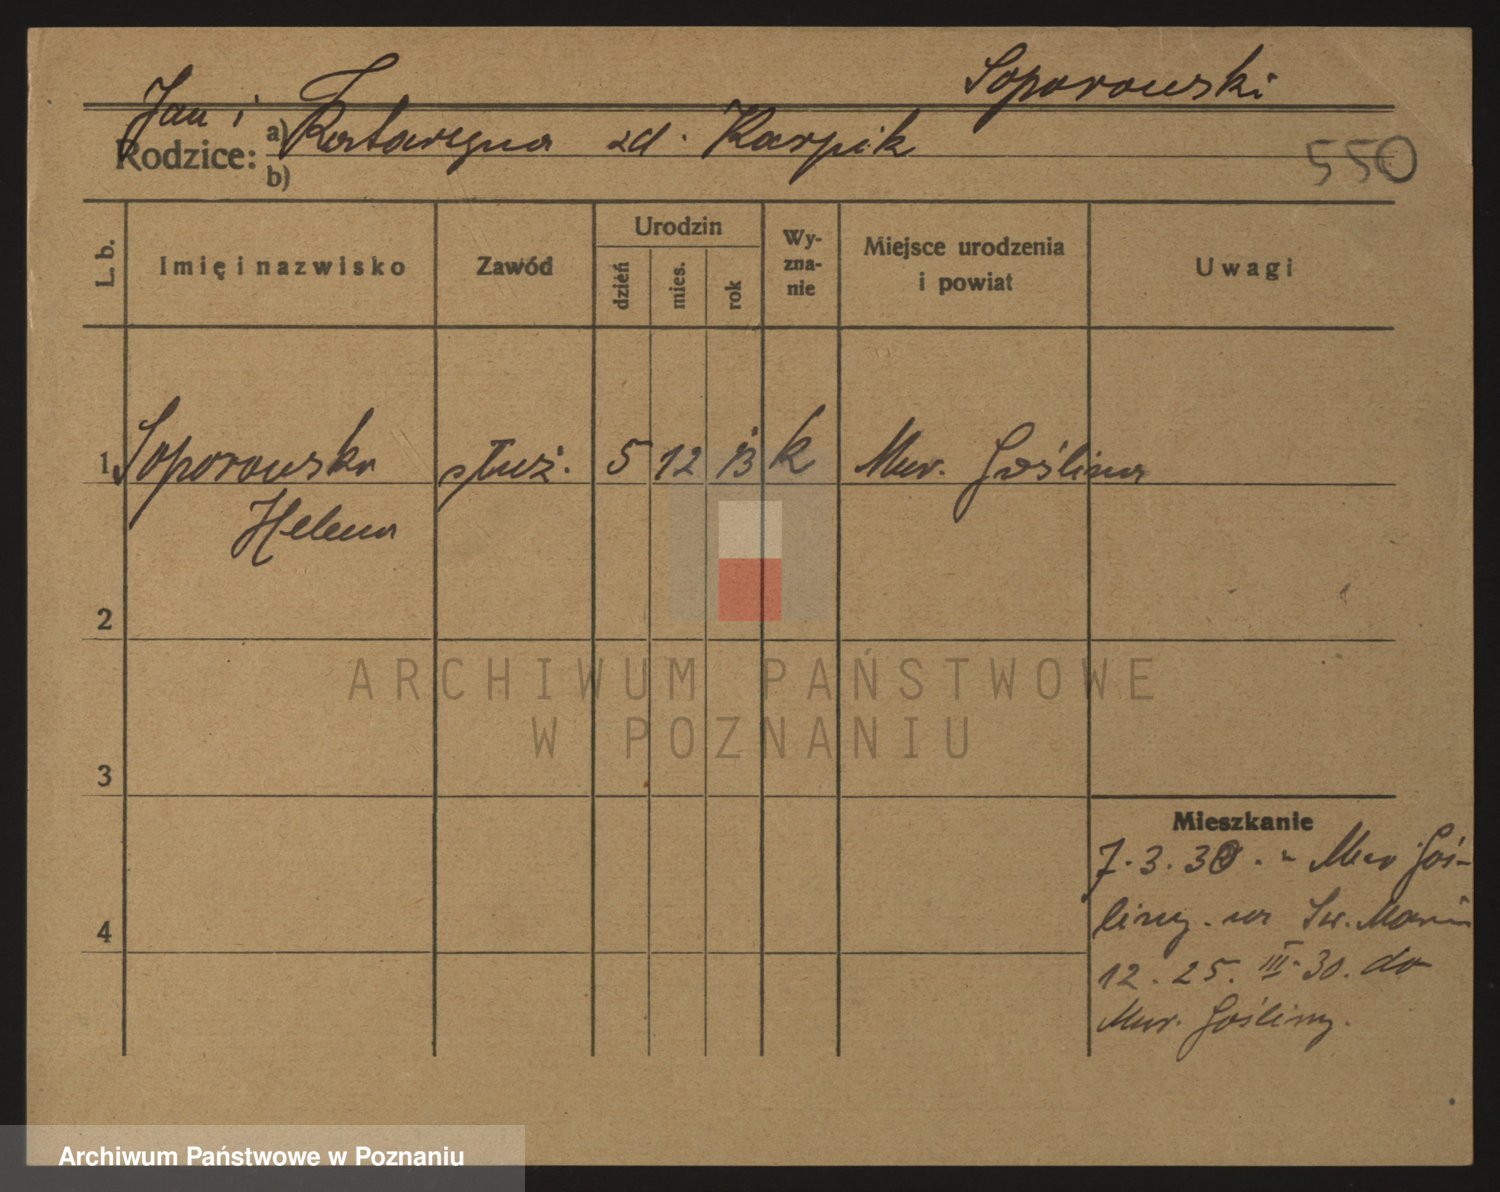 Soporowski
Jan i
Rodzice: a) Katarzyna zd. Karpik
b)
550
L. b.
Imię i nazwisko
Zawód
Urodzin
dzień
mies.
rok
Wy-
zna-
nie
Miejsce urodzenia
i powiat
Uwagi
1 Soporowska służ. 5 12 13 k Mur. Goślina
Helena
2
3
4
Mieszkanie
7.3.30. z Mur Goś-
liny. na Św. Marcin
12. 25. III. 30. do
Mur. Gośliny.
ARCHIWUM PAŃSTWOWE
W POZNANIU
Archiwum Państwowe w Poznaniu